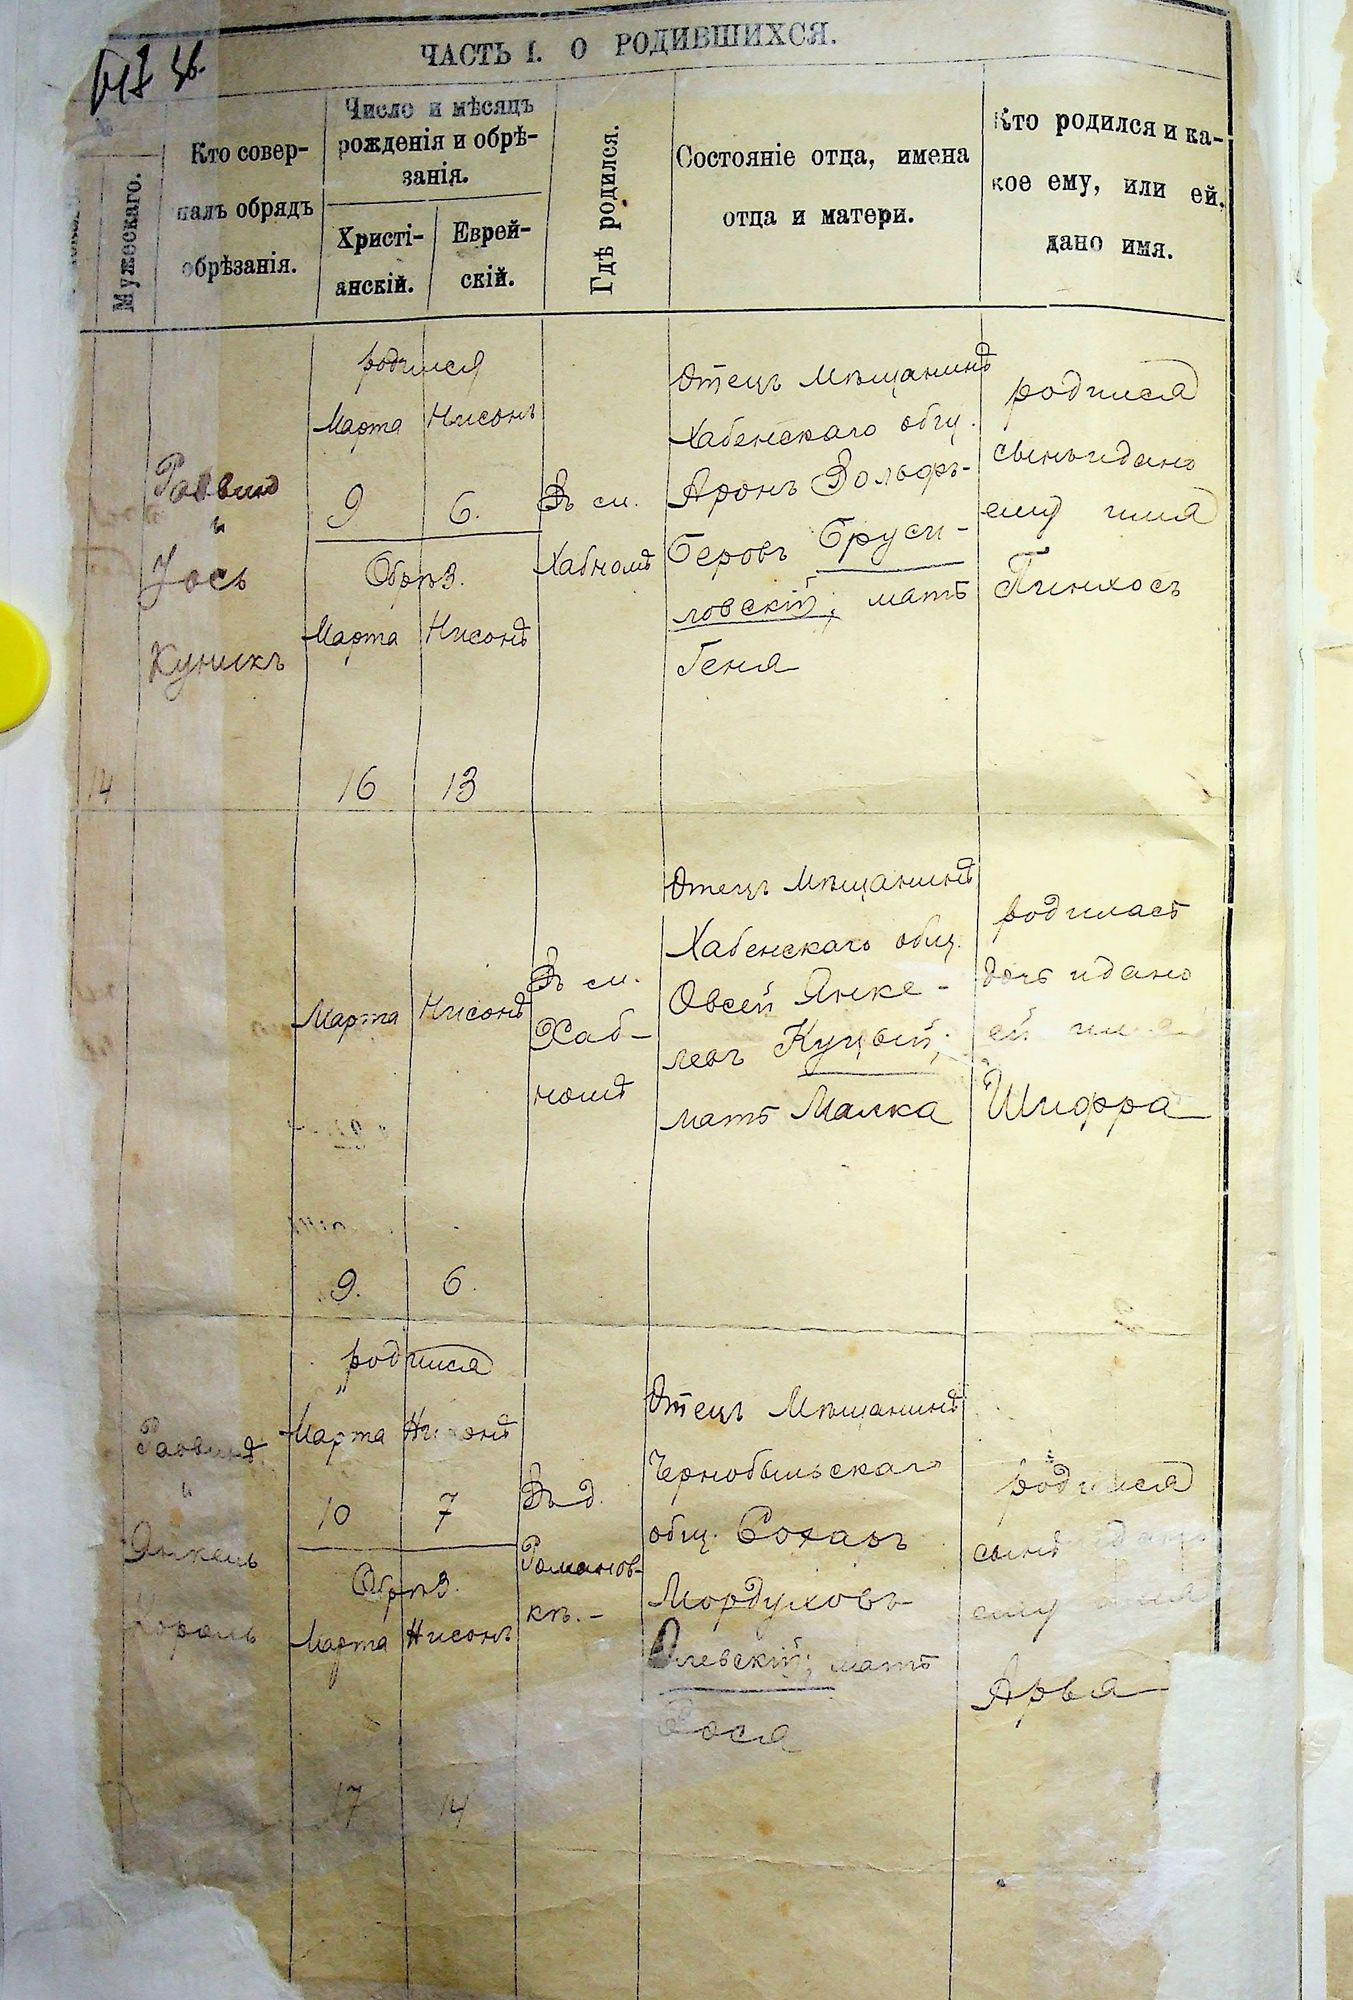 ЧАСТЬ I. О РОДИВШИХСЯ.
Мужескаго.
Кто совер-
шалъ обрядъ
обрѣзанія.
Число и мѣсяцъ
рожденія и обрѣ-
занія.
Христі-
анскій.
Еврей-
скій.
Гдѣ родился.
Состояніе отца, имена
отца и матери.
Кто родился и ка-
кое ему, или ей,
дано имя.
14
Раввинъ
"
Іось
Куникъ
родился
Марта
Нисонъ
9
6.
Обрѣз.
Марта
Нисонъ
16
13
Въ м.
Хабномъ
Отецъ Мѣщанинъ
Хабенскаго общ.
Аронъ Вольфъ-
Беровъ Бруси-
ловскій; мать
Геня
родился
сынъ и дано
ему имя
Пинхосъ
Марта
Нисонъ
9.
6.
Въ м.
Хаб-
номъ
Отецъ Мѣщанинъ
Хабенскаго общ.
Овсей Янке-
левъ Куцый;
мать Малка
родилась
дочь и дано
ей имя
Шифра
Раввинъ
"
Янкель
Король
родился
Марта
Нисонъ
10
7
Обрѣз.
Марта
Нисонъ
17
14
Въ д.
Романов-
кѣ.-
Отецъ Мѣщанинъ
Чернобыльскаго
общ.
Мордуховъ
Олевскій; мать
родился
сынъ и дано
ему имя
Арья